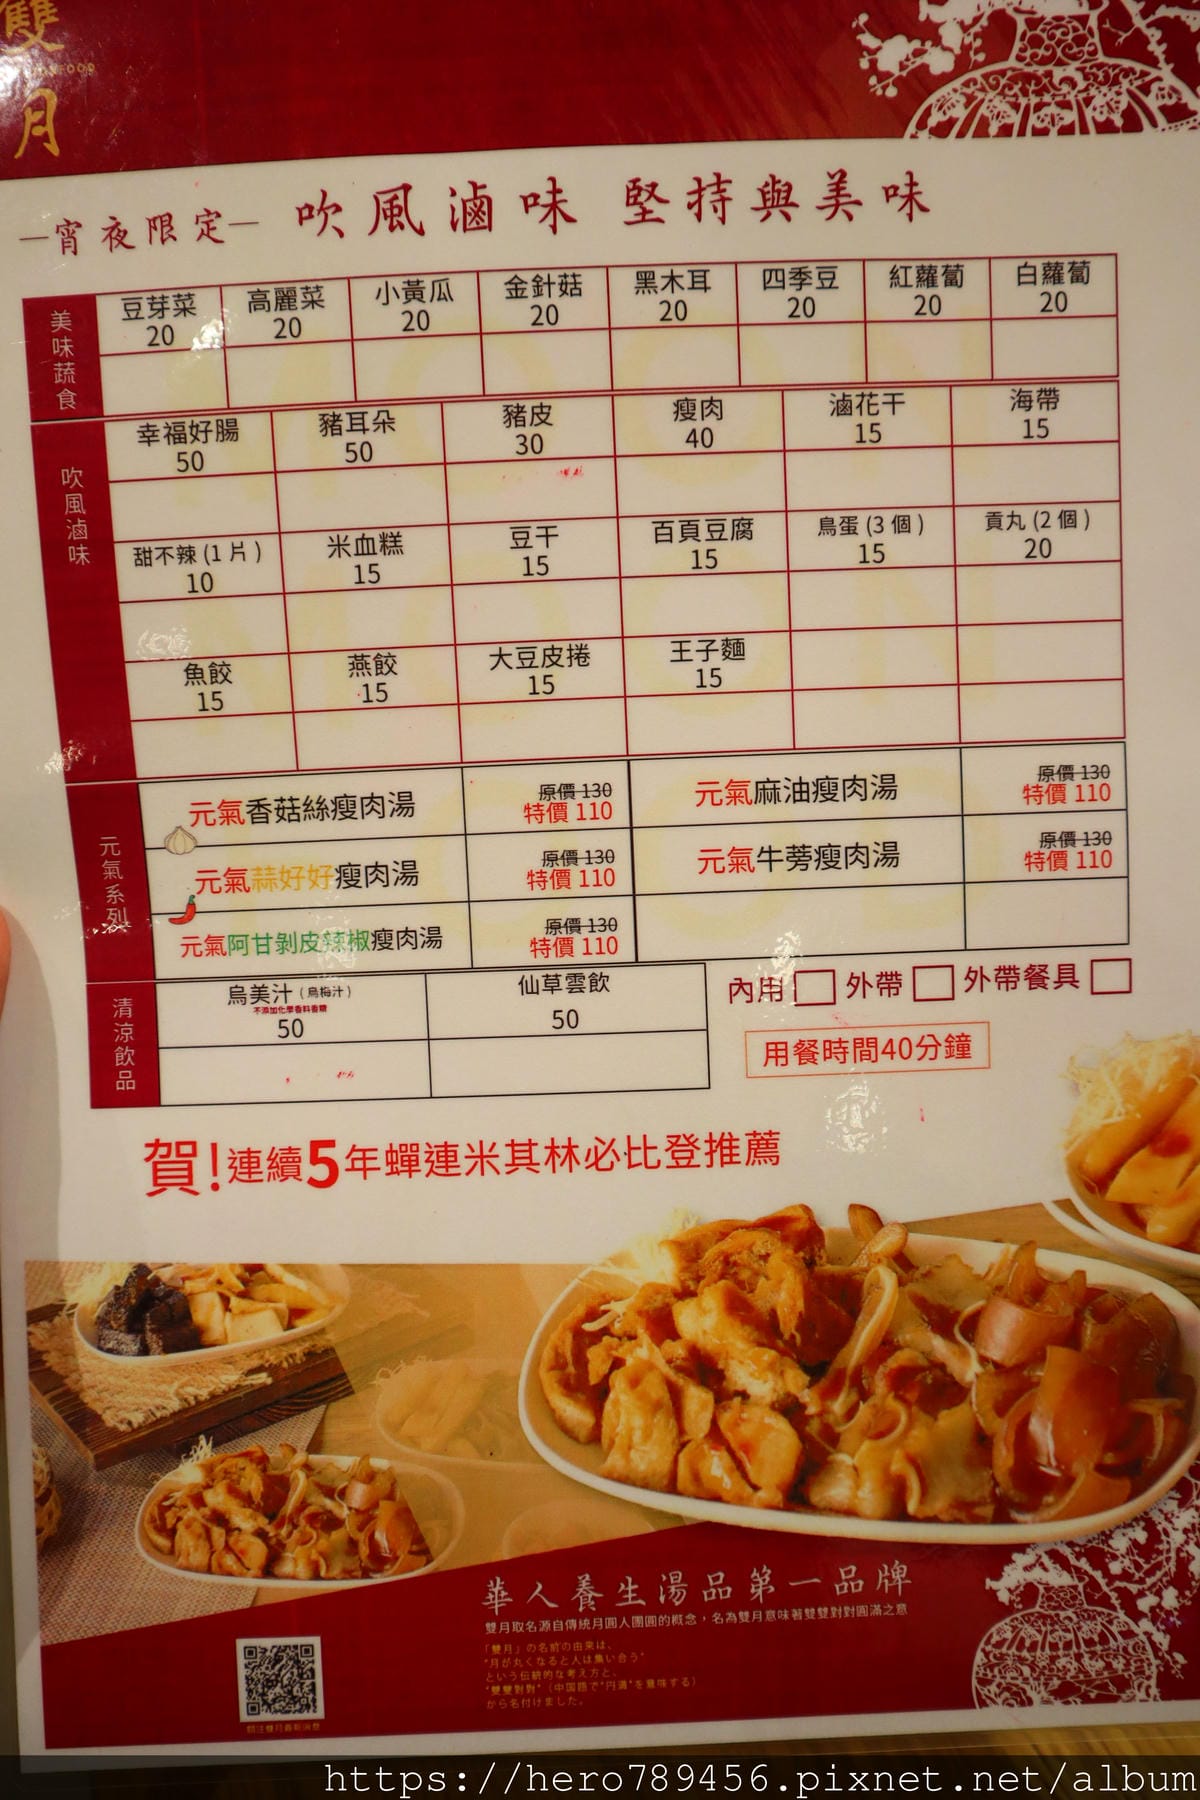 雙月
FOOD
—宵夜限定— 吹風滷味 堅持與美味
美味蔬食
豆芽菜 高麗菜 小黃瓜 金針菇 黑木耳 四季豆 紅蘿蔔 白蘿蔔
20 20 20 20 20 20 20 20
吹風滷味
幸福好腸 豬耳朵 豬皮 瘦肉 滷花干 海帶
50 50 30 40 15 15
甜不辣(1片) 米血糕 豆干 百頁豆腐 鳥蛋(3個) 貢丸(2個)
10 15 15 15 15 20
魚餃 燕餃 大豆皮捲 王子麵
15 15 15 15
元氣系列
元氣香菇絲瘦肉湯 原價130 特價110 元氣麻油瘦肉湯 原價130 特價110
元氣蒜好好瘦肉湯 原價130 特價110 元氣牛蒡瘦肉湯 原價130 特價110
元氣阿甘剝皮辣椒瘦肉湯 原價130 特價110
清涼飲品
烏美汁(烏梅汁) 仙草雲飲
不添加化學香料香精
50 50
內用 外帶 外帶餐具
用餐時間40分鐘
賀!連續5年蟬連米其林必比登推薦
華人養生湯品第一品牌
雙月取名源自傳統月圓人團圓的概念，名為雙月意味著雙雙對對圓滿之意
「雙月」の名前の由来は、
"月が丸くなると人は集い合う"
という伝統的な考え方と、
"雙雙對對"（中国語で"円満"を意味する）
から名付けました。
關注雙月最新消息
https://hero789456.pixnet.net/album